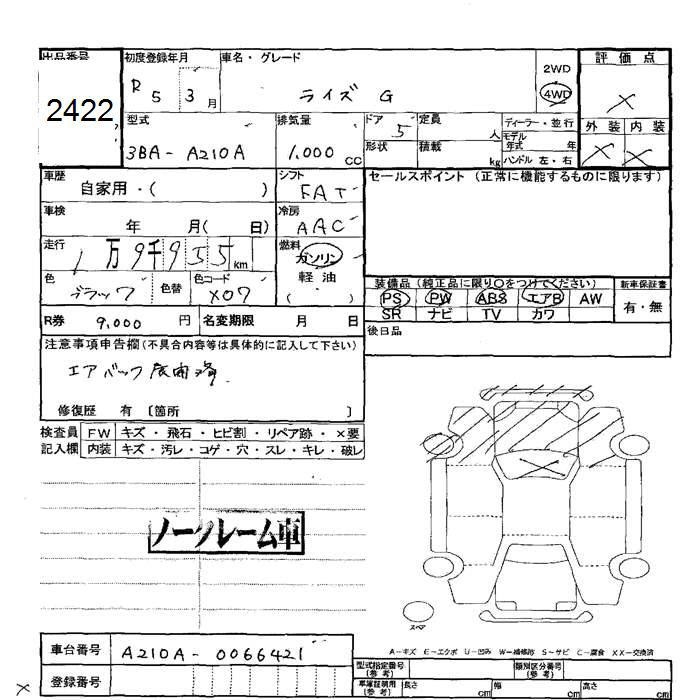 出品番号 初度登録年月 車名・グレード 評価点
2422
R5 3月 ライズ G 2WD 4WD ×
型式 排気量 ドア 定員 ディーラー・並行 外装 内装
3BA-A210A 1,000cc 5 人 モデル年式 年 × ×
形状 積載 kg ハンドル 左・右
車歴 シフト セールスポイント (正常に機能するものに限ります)
自家用・( ) FAT
車検 冷房
年 月( 日) AAC
走行 燃料
1万9千955km ガソリン
色 色替 色コード 軽油
ブラック X07 ( )
装備品(純正品に限り○をつけてください) 新車保証書
PS PW ABS エアB AW 有・無
SR ナビ TV カワ
R券 9,000円 名変期限 月 日
後日品
注意事項申告欄(不具合内容等は具体的に記入して下さい)
エアバック展開済
修復歴 有 〔箇所 〕
検査員 FW キズ・飛石・ヒビ割・リペア跡・×要
記入欄 内装 キズ・汚レ・コゲ・穴・スレ・キレ・破レ
ノークレーム車
スペア
車台番号 A210A-0066421
A-キズ E-エクボ U-凹み W-補修跡 S-サビ C-腐食 XX-交換済
型式指定番号(参考) 類別区分番号(参考)
登録番号
車庫証明用(参考) 長さ cm 幅 cm 高さ cm
×